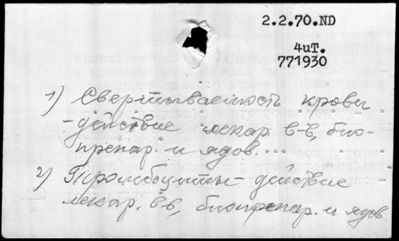 2.2.70.ND
4иТ.
771930
1) Свертываемость крови
- действие лекар. в-в, био-
препар. и ядов...
2) Тромбоциты - действие
лекар. в-в, биопрепар. и ядов